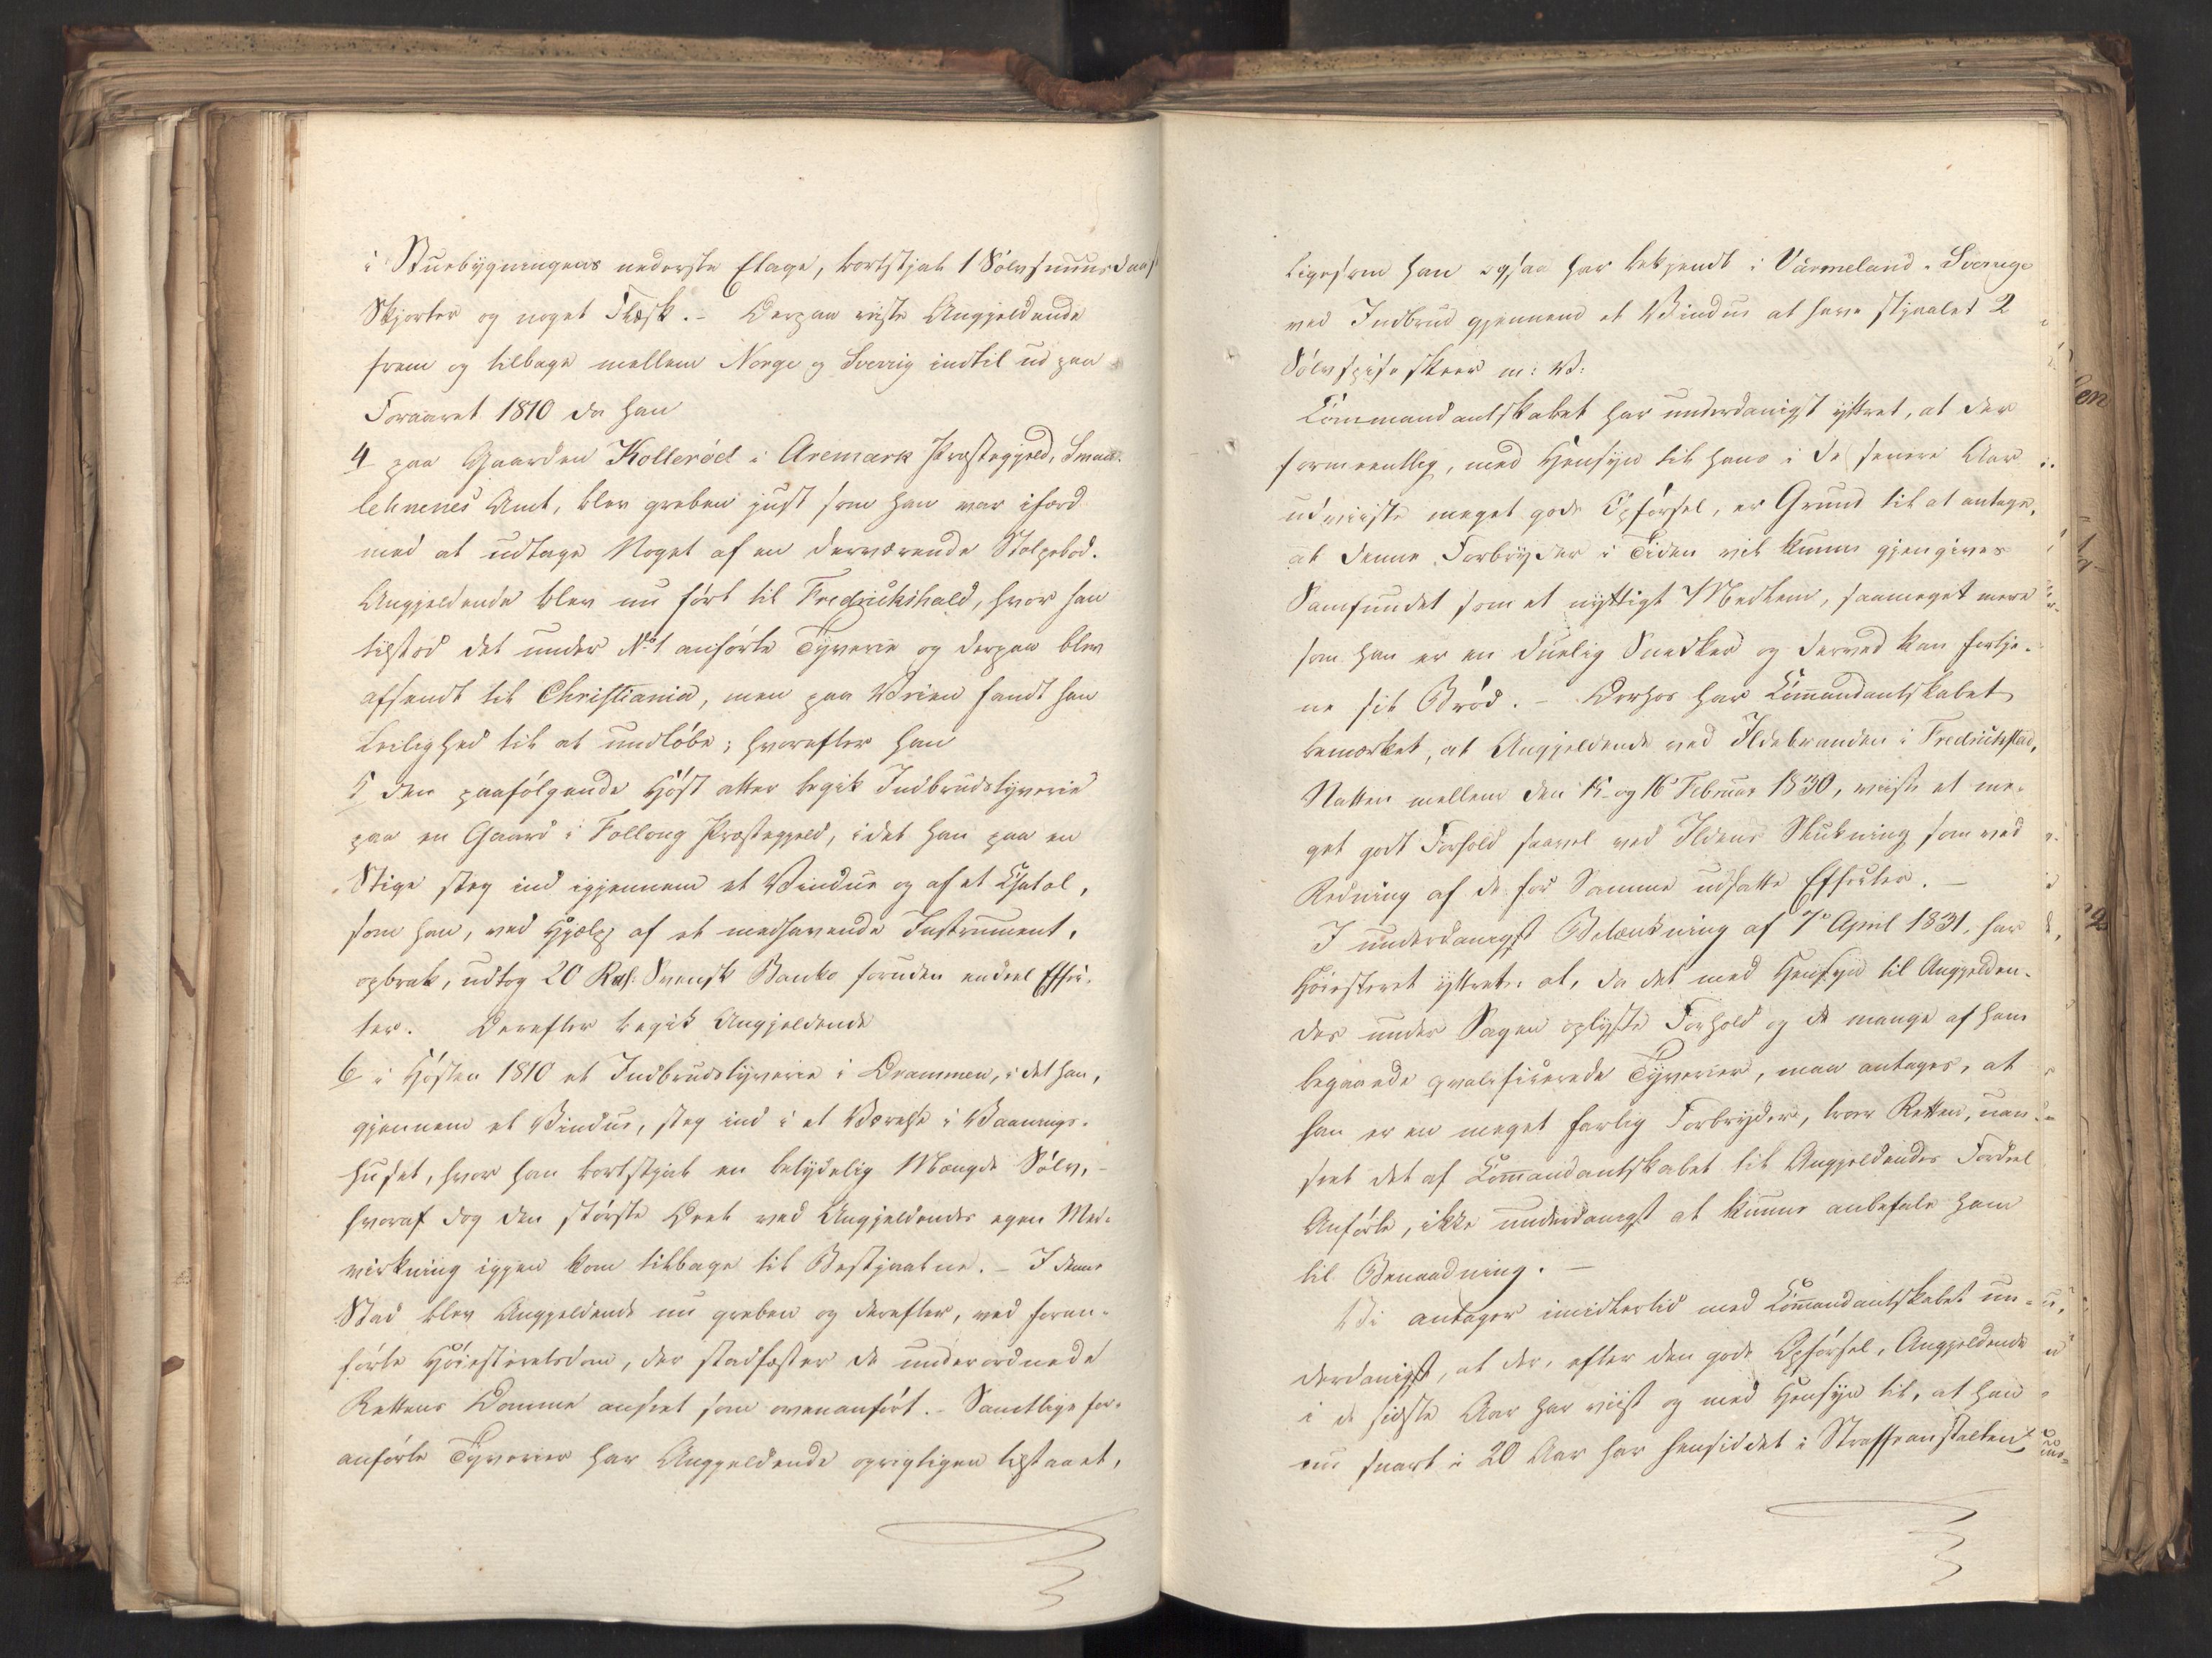 i Stuebygningens nederste Etage, bortstjal 1 Sølvsnuusdaas
Skjorter og noget Flesk. – Derpaa reiste Angjeldende
frem og tilbage mellem Norge og Sverrig indtil ud paa
Foraaret 1810 da han
4 paa Gaarden Kolleröd i Aremark Præstegjeld, Smaa-
lehnenes Amt, blev greben just som han var ifærd
med at udtage Noget af en derværende Stolpebod.
Angjeldende blev nu ført til Fredrikshald, hvor han
tilstod det under No 1 anførte Tyverie og derpaa blev
afsendt til Christiania, men paa Veien fandt han
Leilighed til at undløbe; hvorefter han
5 den paafølgende Høst atter begik Indbrudstyverie
paa en Gaard i Folloug Præstegjeld, idet han paa en
Stige steg ind igjennem et Vindue og af et Chatol,
som han, ved Hjælp af et medhavende Instrument,
opbrak, udtog 20 Rd. Svensk Banko foruden endeel Effec-
ter. Derefter begik Angjeldende
6 i Høsten 1810 et Indbrudstyverie i Drammen, idet han,
gjennem et Vindue, steg ind i et Værelse i Vaanings-
huset, hvor han bortstjal en betydelig Mængde Sølv,
hvoraf dog den største Deel ved Angjeldendes egen Med-
virkning igjen kom tilbage til Bestjaalne. – I denne
Stad blev Angjeldende nu greben og derefter, ved foran-
førte Høiesteretsdom, der stadfæster de underordnede
Retters Domme anseet som ovenanført. – Samtlige for-
anførte Tyverier har Angjeldende oprigtigen tilstaaet,
ligesom han ogsaa har bekjendt i Värmeland i Sverige
ved Indbrud gjennem et Vindue at have stjaalet 2
Sølvspiseskeer m: V:
Commandantskabet har underdanigst yttret, at der
formeentlig, med Hensyn til hans i de senere Aar
udviiste meget gode Opførsel, er Grund til at antage,
at denne Forbryder i Tiden vil kunne gjengives
Samfundet som et nyttigt Medlem, saameget mere
som han er en duelig Snedker og derved kan fortje-
ne sit Brød. – Derhos har Commandantskabet
bemærket, at Angjeldende ved Ildebranden i Fredrikstad,
Natten mellem den 15 og 16 Februar 1830, viiste et me-
get godt Forhold saavel ved Ildens Slukning som ved
Redning af de for Samme udsatte Effecter. –
I underdanigst Betænkning af 7de April 1831, har
Høiesteret yttret: at, da det med Hensyn til Angjelden-
des under Sagen oplyste Forhold og de mange af ham
begaaede qvalificerede Tyverier, maa antages, at
han er en meget farlig Forbryder, troer Retten, uan-
seet det af Commandantskabet til Angjeldendes Fordeel
Anførte, ikke underdanigst at kunne anbefale ham
til Benaadning. –
Vi antager imidlertid med Commandantskabet un-
derdanigst, at der, efter den gode Opførsel, Angjeldende
i de sidste Aar har viist og med Hensyn til, at han
nu snart i 20 Aar har hensiddet i Straffeanstalten